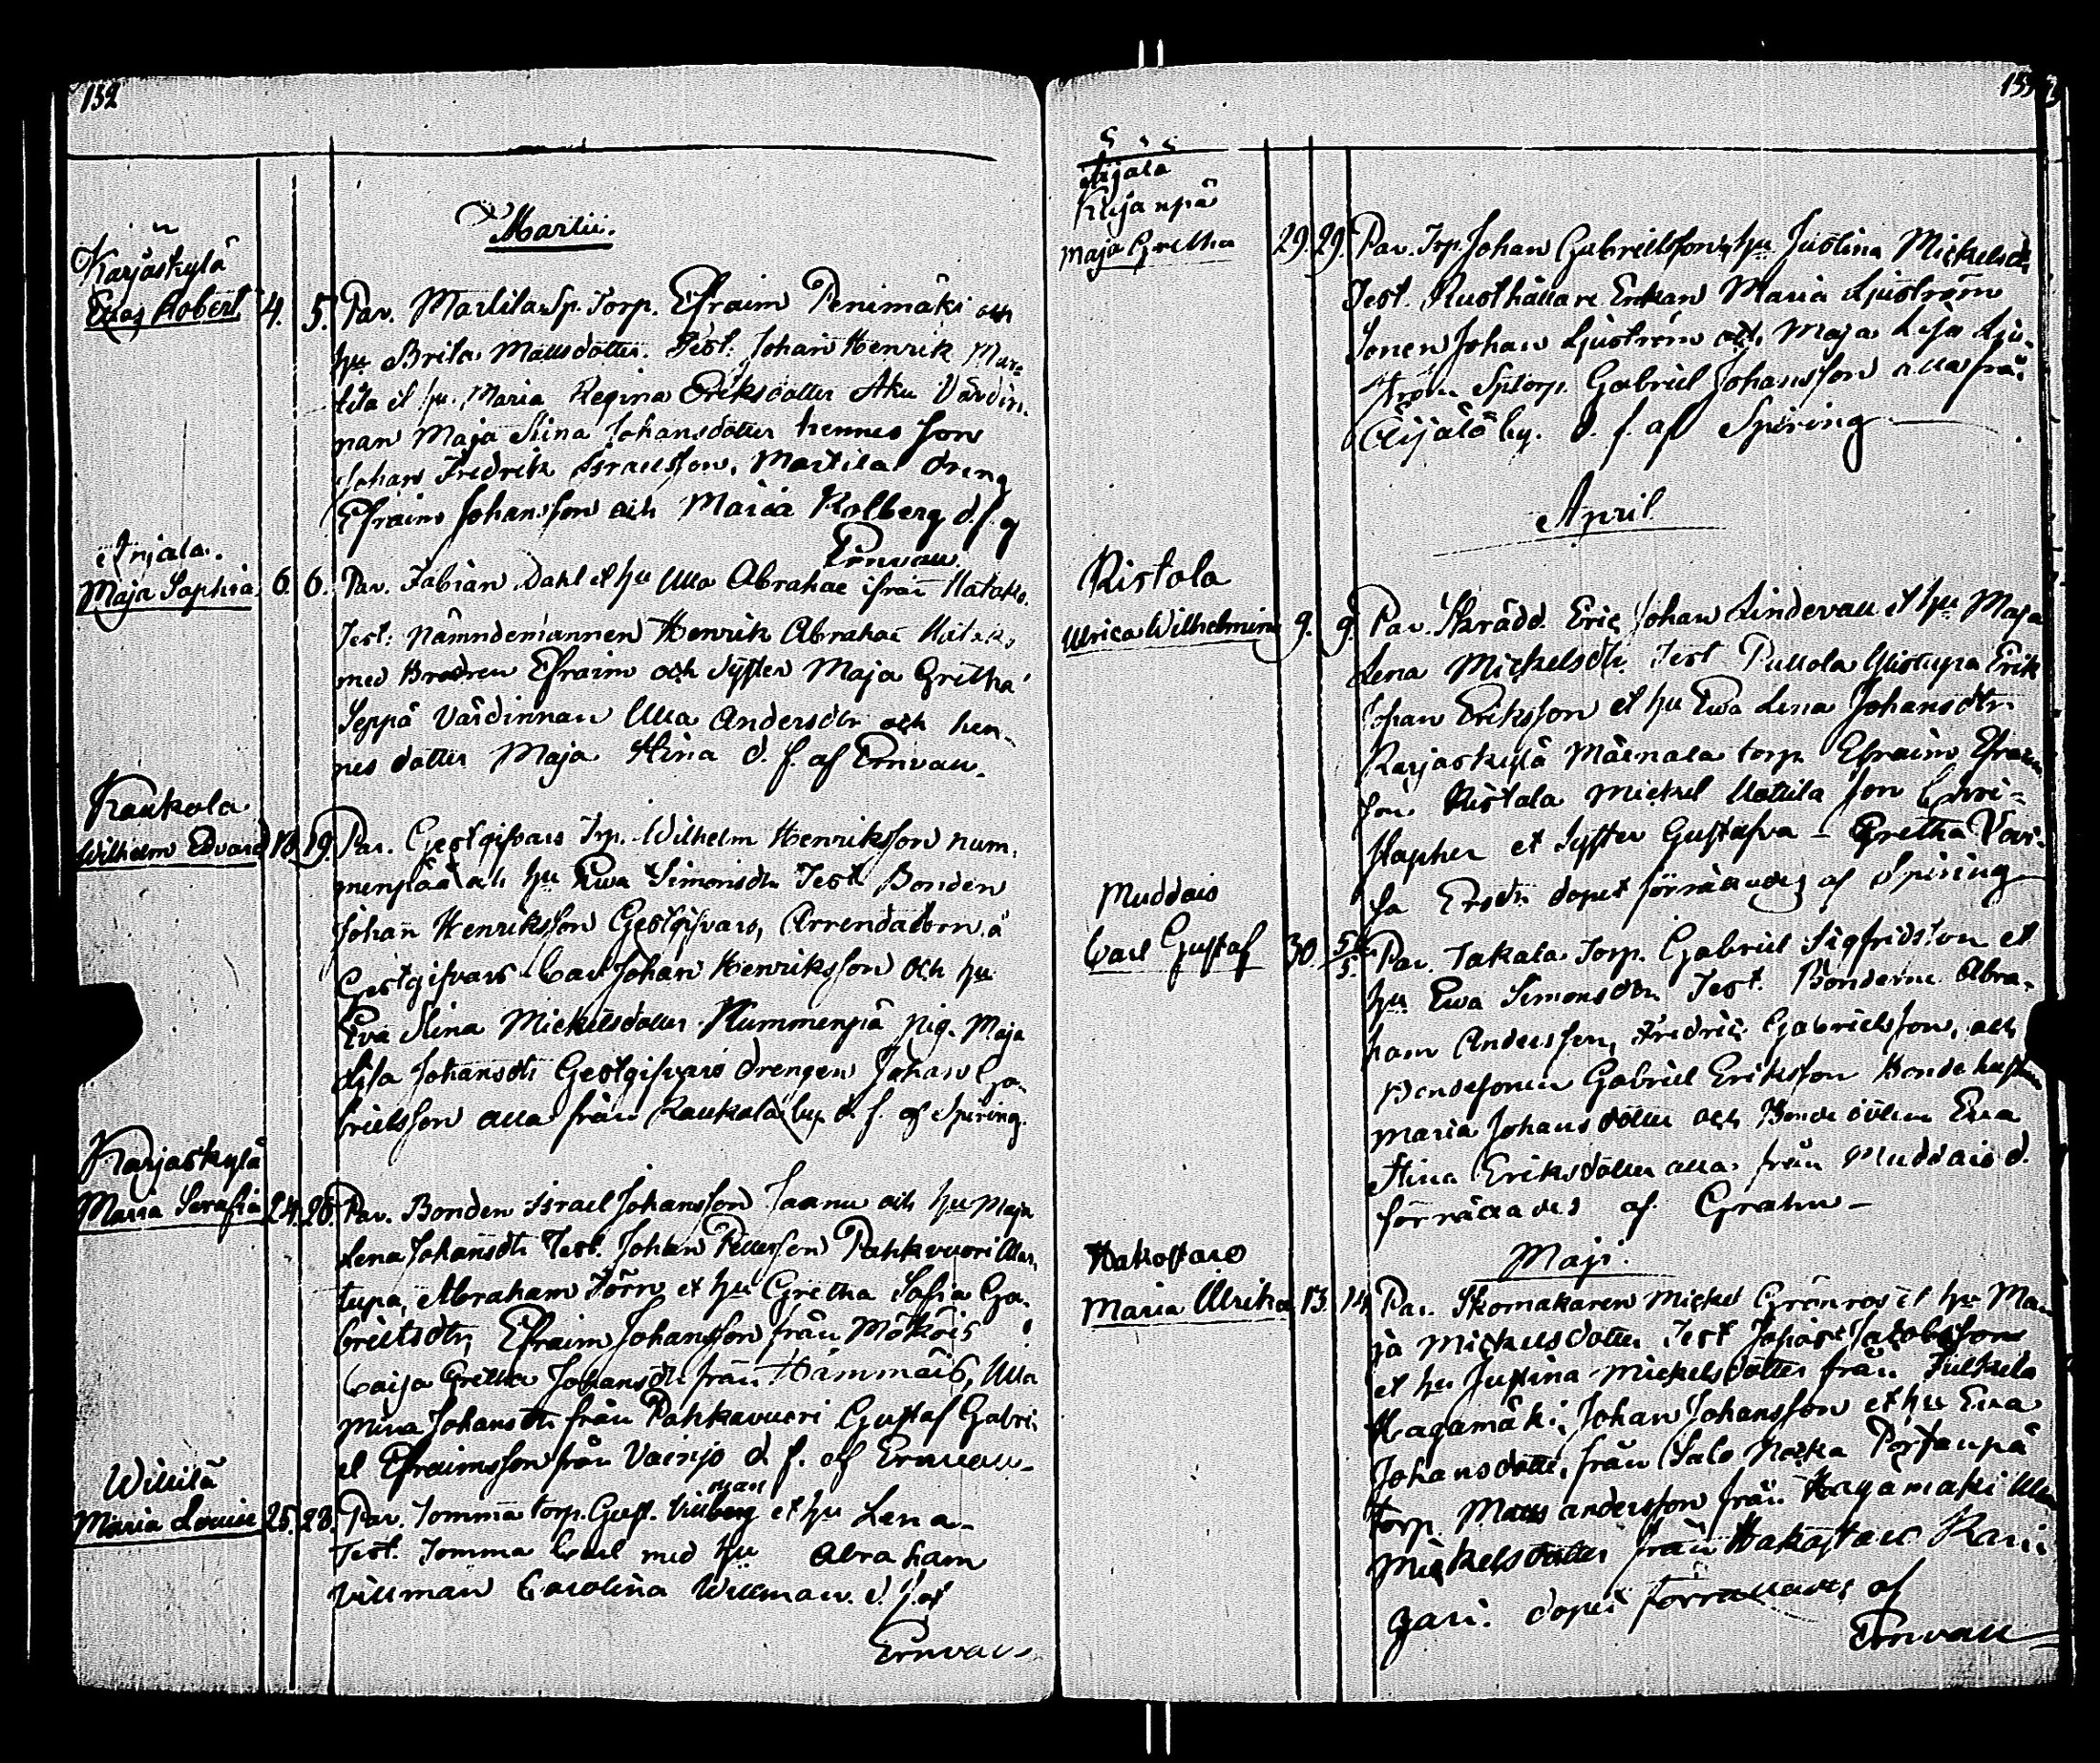 132
Martii.
Karjaskylä
Esaias Robert 4. 5. Par. Martila Sp. Torp. Efraim Penimäki och
hu Brita Mattsdotter. Test: Johan Henrik Mar-
tila et hu. Maria Regina Eriksdotter Aku Värdin-
nan Maja Stina Johansdotter hennes son
Johan Fredrik Israelsson, Martila dreng
Efraim Johansson och Maria Kolberg d. f. g
Ernvall.
Anjala.
Maja Sophia 6. 6. Par. Fabian Dahl et hu Ulla Abrahae ifrån Hatako.
Test: Nämndemannen Henrik Abrahae Hatako
med Brodren Efraim och Syster Maja Gretha
Seppä Värdinnan Ulla Andersdtr och hen-
nes dotter Maja Stina d. f. af Ernvall.
Kaukola
Wilhelm Edvard 18. 19. Par. Gestgifvars Trp. Wilhelm Henriksson Num-
menpää och hu Ewa Simonsdtr Test Bonden
Johan Henriksson Gestgifvars, Arrendatorn å
Gestgifvars Carl Johan Henriksson och hu
Eva Stina Mickelsdotter Nummenpä pig. Maja
Lisa Johansdtr Gestgifvars drengen Johan Ga-
brielsson alla från Kaukola by. d. f. af Spiring.
Karjaskylä
Maria Serafia 24. 26. Par. Bonden Israel Johansson Jaanu och hu Maja
Lena Johansdtr Test. Johan Pettersson Pakkavuori
tupa, Abraham Törn et hu Gretha Safia Ga-
brielsdtr, Efraim Johansson från Mököis
Caisa Gretha Johansdtr från Hämmäis, Ulla
Mina Johansdtr från Pakkavuori Gustaf Gabri-
el Efraimsson från Vainjo d. f. af Ernvall
Willilä
man
Maria Lovise 25. 28. Par. Tomma torp. Gust. Villberg et hu Lena
Test. Tomma Carl med hu Abraham
Villman Carolina Willman. d. f. af
Ernvall
133
Äijälä
Kujanpä
Maja Gretha 29. 29. Par. Trp. Johan Gabrielsson, hu Justina Mickelsdr
Test. Rusthållare Enkan Maria Ljuström
Sonen Johan Ljuström och Maja Lisa Lju-
ström Sptorp. Gabriel Johansson alla från
Äijälä by. d. f. af Spiring
April
Ristola
Ulrica Wilhelmina 9. 9. Par. Skrädd. Eric Johan Lindevall et hu Maja
Lena Mickelsdtr. Test Pullola Erik
Johan Eriksson et hu Ewa Lena Johansdtr.
Karjaskylä Märnala torp. Efraim Efraim
son. Ristola Mickel Uotila son Chri-
stopher et Syster Gustafva - Gretha
Ersdtr dopet förrättades af Spiring
Muddais
Carl Gustaf 30. 5/5. Par. Takala Torp. Gabriel Sigfridsson et
hu. Ewa Simonsdtr Test. Bönderne Abra-
ham Andersson, Fredric Gabrielsson, och
Bondesonen Gabriel Eriksson Bondehustrun
Maria Johansdotter och Bonde dottren Ewa
Stina Eriksdotter alla från Muddais d.
förrättades af Grahn
Maji.
Hakostaro
Maria Ulrika 13. 14. Par. Skomakaren Mickel Grönros et hu Ma-
ja Mickelsdotter Test Johan Jacobsson
et hu Justina Mickelsdotter från Julkula
Hagamäki, Johan Johansson et hu Ewa
Johansdotter, från Salo Portanpä
torp. Matts andersson från Hagamäki Ulla
Mickelsdotter från Hakostaro
dopet förrättades af
Ernvall